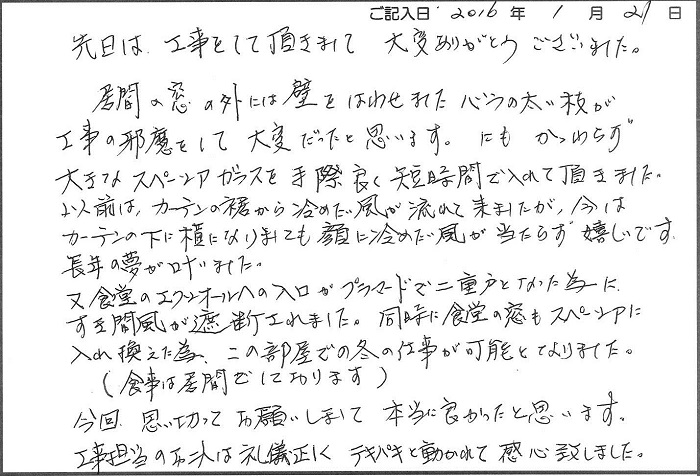 ご記入日 2016 年 1 月 21 日
先日は、工事をして頂きまして 大変ありがとうございました。
居間の窓の外には壁をはわせました バラの太い枝が
工事の邪魔をして 大変だったと思います。にもかかわらず
大きなスペーシアガラスを手際良く短時間で入れて頂きました。
以前は、カーテンの裾から冷めたい風が流れて来ましたが、今は
カーテンの下に横になりましても顔に冷めたい風が当たらず嬉しいです。
長年の夢が叶いました。
又食堂のエクシオールへの入口がプラマードで二重戸となった為に
すき間風が遮断されました。同時に食堂の窓もスペーシアに
入れ換えた為、この部屋での冬の仕事が可能となりました。
(食事は居間でしております)
今回、思い切ってお願いしまして 本当に良かったと思います。
工事担当のお二人は礼儀正しく テキパキと動かれて感心致しました。